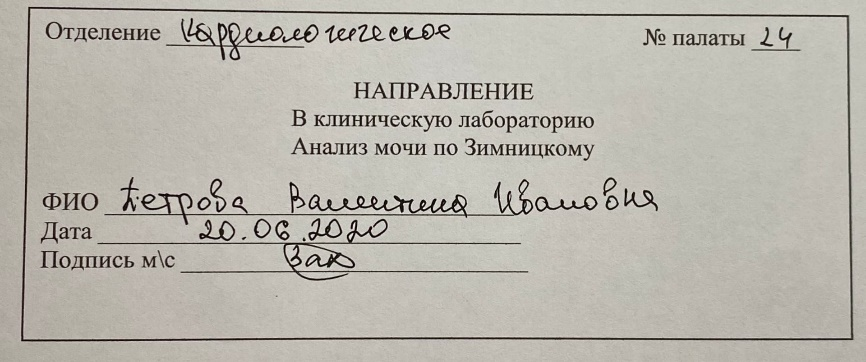 Отделение Кардиологическое № палаты 24
НАПРАВЛЕНИЕ
В клиническую лабораторию
Анализ мочи по Зимницкому
ФИО Петрова Валентина Ивановна
Дата 20.06.2020
Подпись м\с Зак